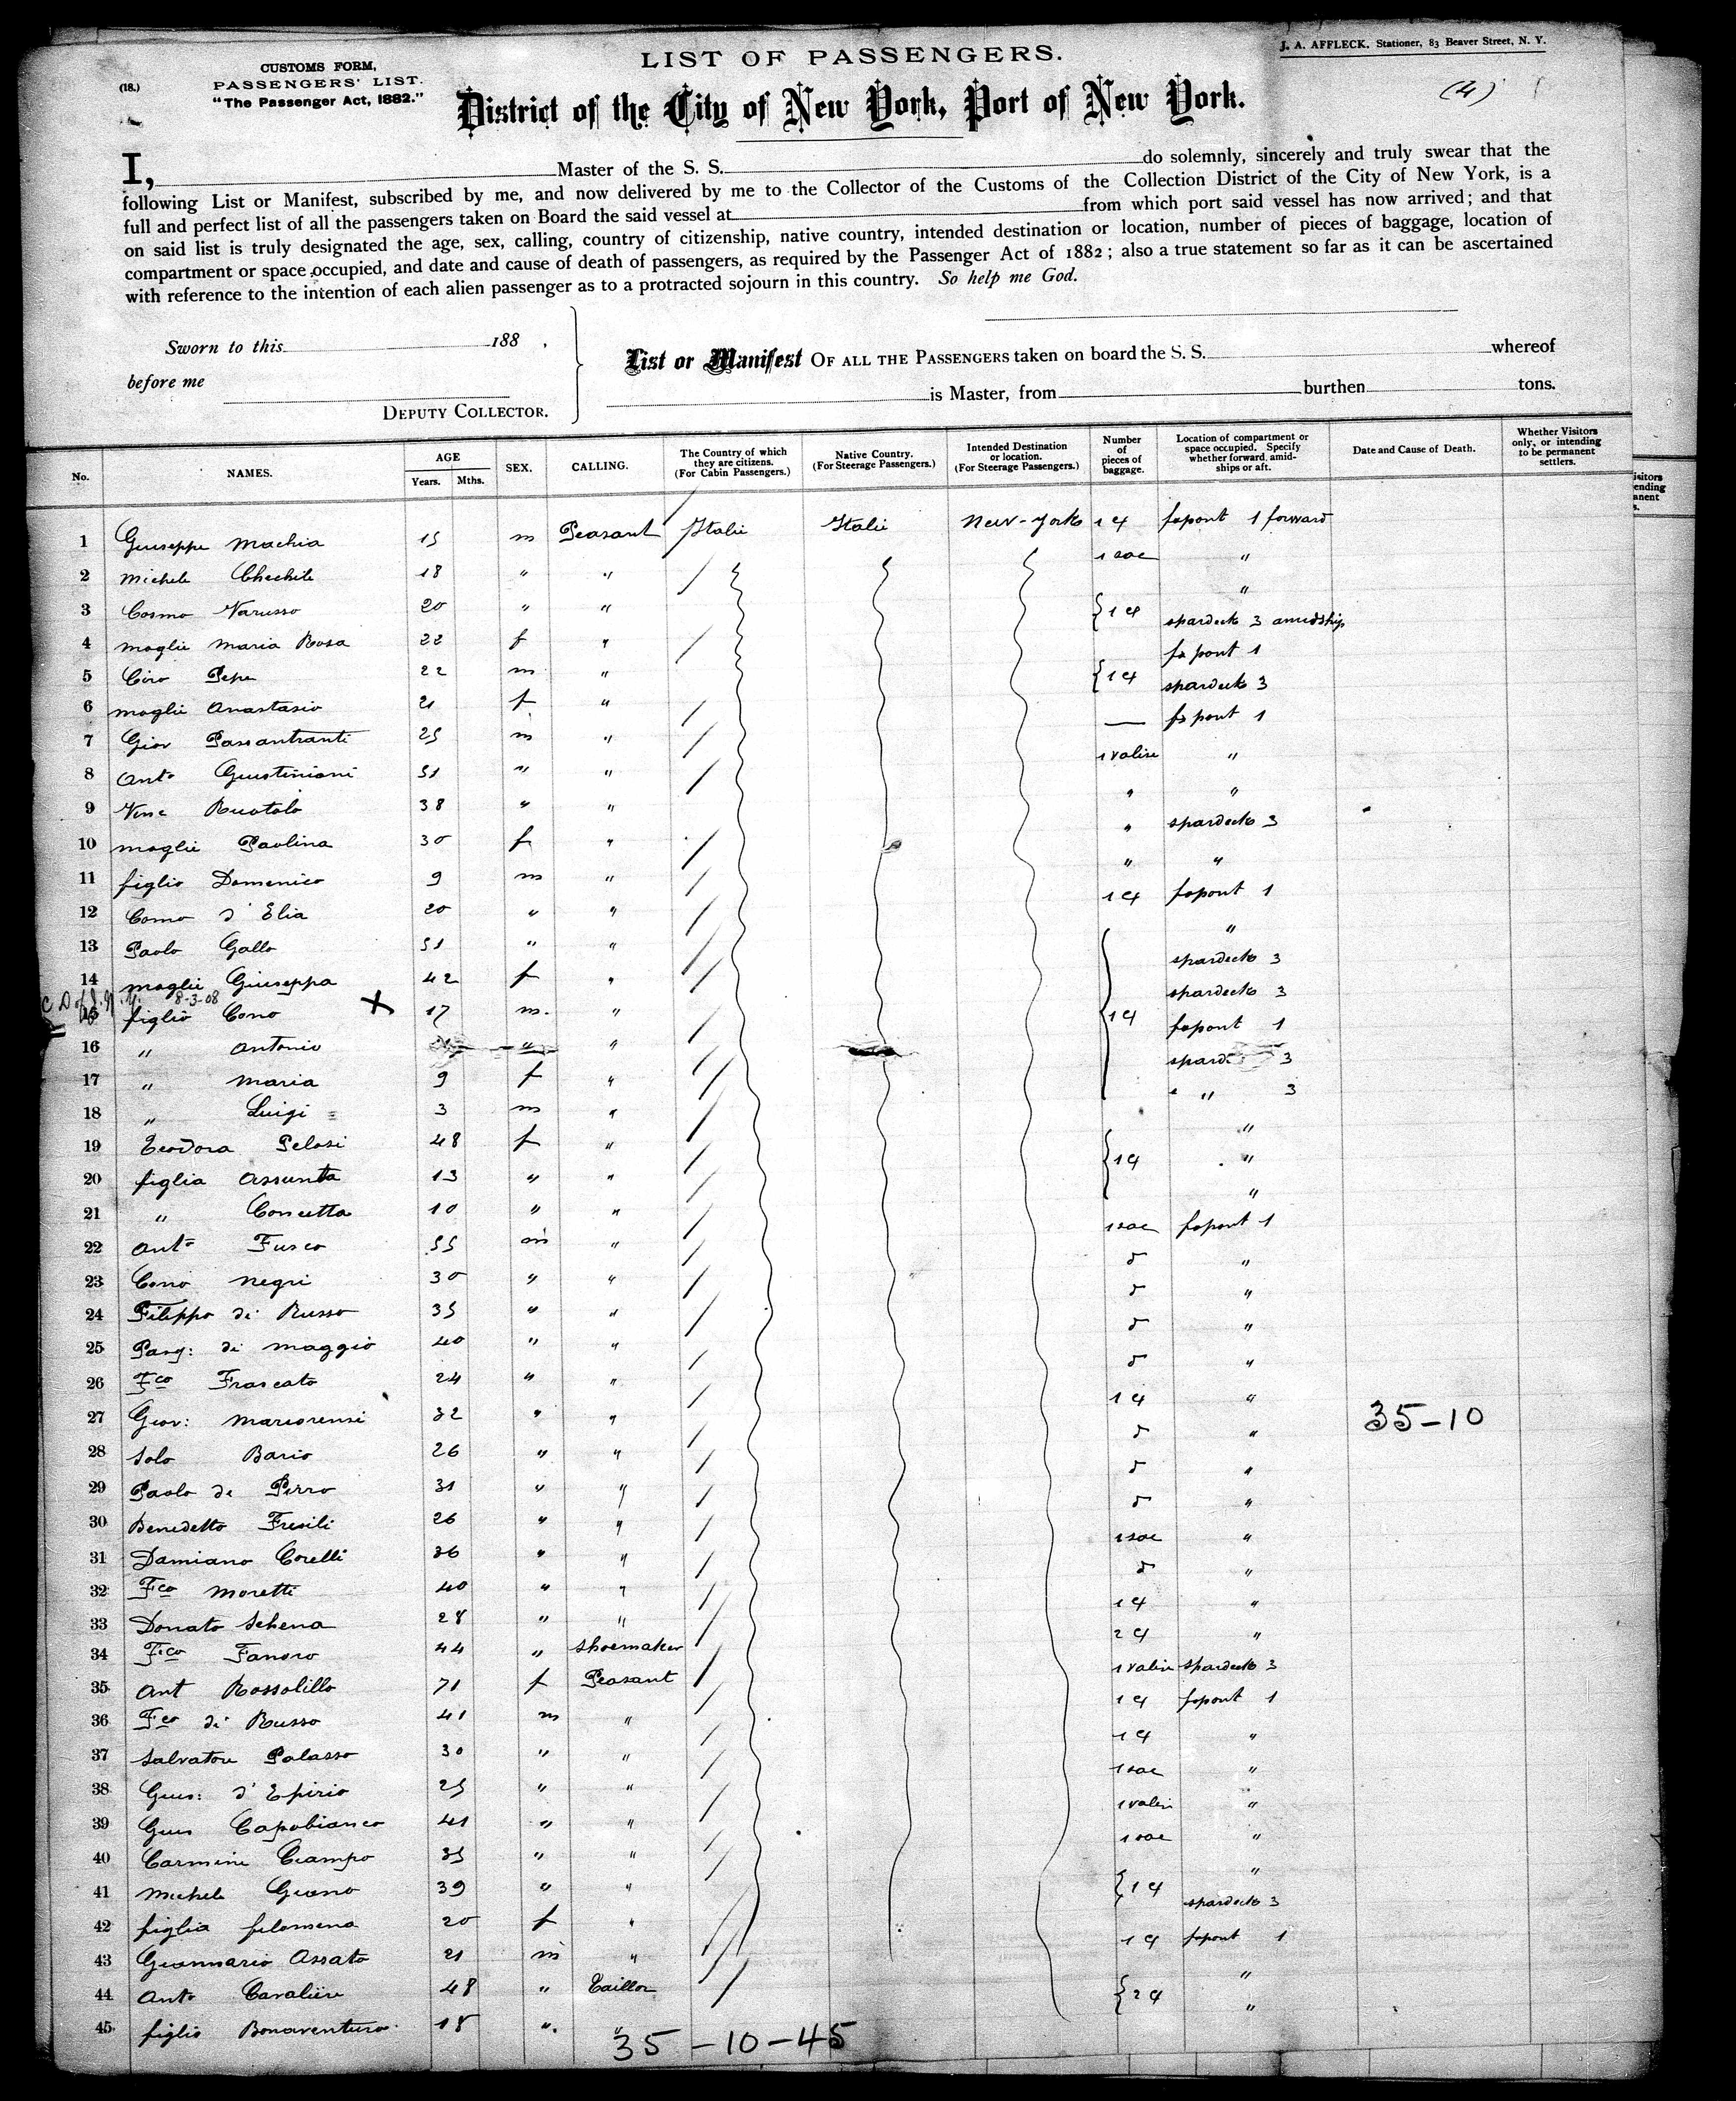 J. A. AFFLECK, Stationer, 83 Beaver Street, N. Y.
LIST OF PASSENGERS.
(18.)
CUSTOMS FORM,
PASSENGERS' LIST.
"The Passenger Act, 1882."
(4)
District of the City of New York, Port of New York.
I, Master of the S. S. do solemnly, sincerely and truly swear that the
following List or Manifest, subscribed by me, and now delivered by me to the Collector of the Customs of the Collection District of the City of New York, is a
full and perfect list of all the passengers taken on Board the said vessel at from which port said vessel has now arrived; and that
on said list is truly designated the age, sex, calling, country of citizenship, native country, intended destination or location, number of pieces of baggage, location of
compartment or space occupied, and date and cause of death of passengers, as required by the Passenger Act of 1882; also a true statement so far as it can be ascertained
with reference to the intention of each alien passenger as to a protracted sojourn in this country. So help me God.
Sworn to this 188 .
before me
DEPUTY COLLECTOR.
List or Manifest OF ALL THE PASSENGERS taken on board the S. S. whereof
is Master, from burthen tons.
No. NAMES. AGE Years. Mths. SEX. CALLING. The Country of which they are citizens. (For Cabin Passengers.) Native Country. (For Steerage Passengers.) Intended Destination or location. (For Steerage Passengers.) Number of pieces of baggage. Location of compartment or space occupied. Specify whether forward, amidships or aft. Date and Cause of Death. Whether Visitors only, or intending to be permanent settlers.
1 Giuseppe Machia 15 m Peasant Italie Italie New-York 1 forward
2 Michele Chechile 18 " " 1 sac "
3 Cosmo Varusso 20 " " "
4 moglie Maria Rosa 22 f " spardeck 3 amidship
5 Ciro Pepe 22 m " 1
6 moglie Anastasio 21 f " spardeck 3
7 Giov Passantranti 25 m " — 1
8 Anto Giustiniani 51 " " 1 valise "
9 Vinc Ruotolo 38 " " " "
10 moglie Paolina 30 f " " spardeck 3
11 figlio Domenico 9 m " " "
12 Cono d'Elia 20 " " 1
13 Paolo Gallo 51 " " "
14 moglie Giuseppa 42 f " spardeck 3
8-3-08
15 figlio Cono X 17 m. " spardeck 3
16 " Antonio " " 1
17 " Maria 9 f " 3
18 " Luigi 3 m " " 3
19 Teodora Pelosi 48 f " "
20 figlia Assunta 13 " " "
21 " Concetta 10 " " "
22 Anto Fusco 55 m " 1 sac 1
23 Cono Negri 30 " " "
24 Filippo di Russo 35 " " "
25 Pasq: di Maggio 40 " " "
26 Fco Frascato 24 " " "
27 Giov: 32 " " "
35-10
28 Solo Bario 26 " " "
29 Paolo di Pirro 31 " " "
30 Benedetto Fresili 26 " " "
31 Damiano Corelli 36 " " 1 sac "
32 Fco Moretti 40 " " "
33 Donato Schena 28 " " "
34 Fco Fanoro 44 " Shoemaker "
35 Ant Rossolillo 71 f Peasant 1 valise spardeck 3
36 Fco di Russo 41 m " 1
37 Salvatore Palasso 30 " " "
38 Gius: d'Epirio 25 " " 1 sac "
39 Gius Capobianco 41 " " 1 valise "
40 Carmine Ciampo 35 " " 1 sac "
41 Michele Giono 39 " " "
42 figlia filomena 20 f " spardeck 3
43 Giannario Assato 21 m " 1
44 Anto Cavaliere 48 " Taillor "
45 figlio Bonaventura 18 " " "
35-10-45